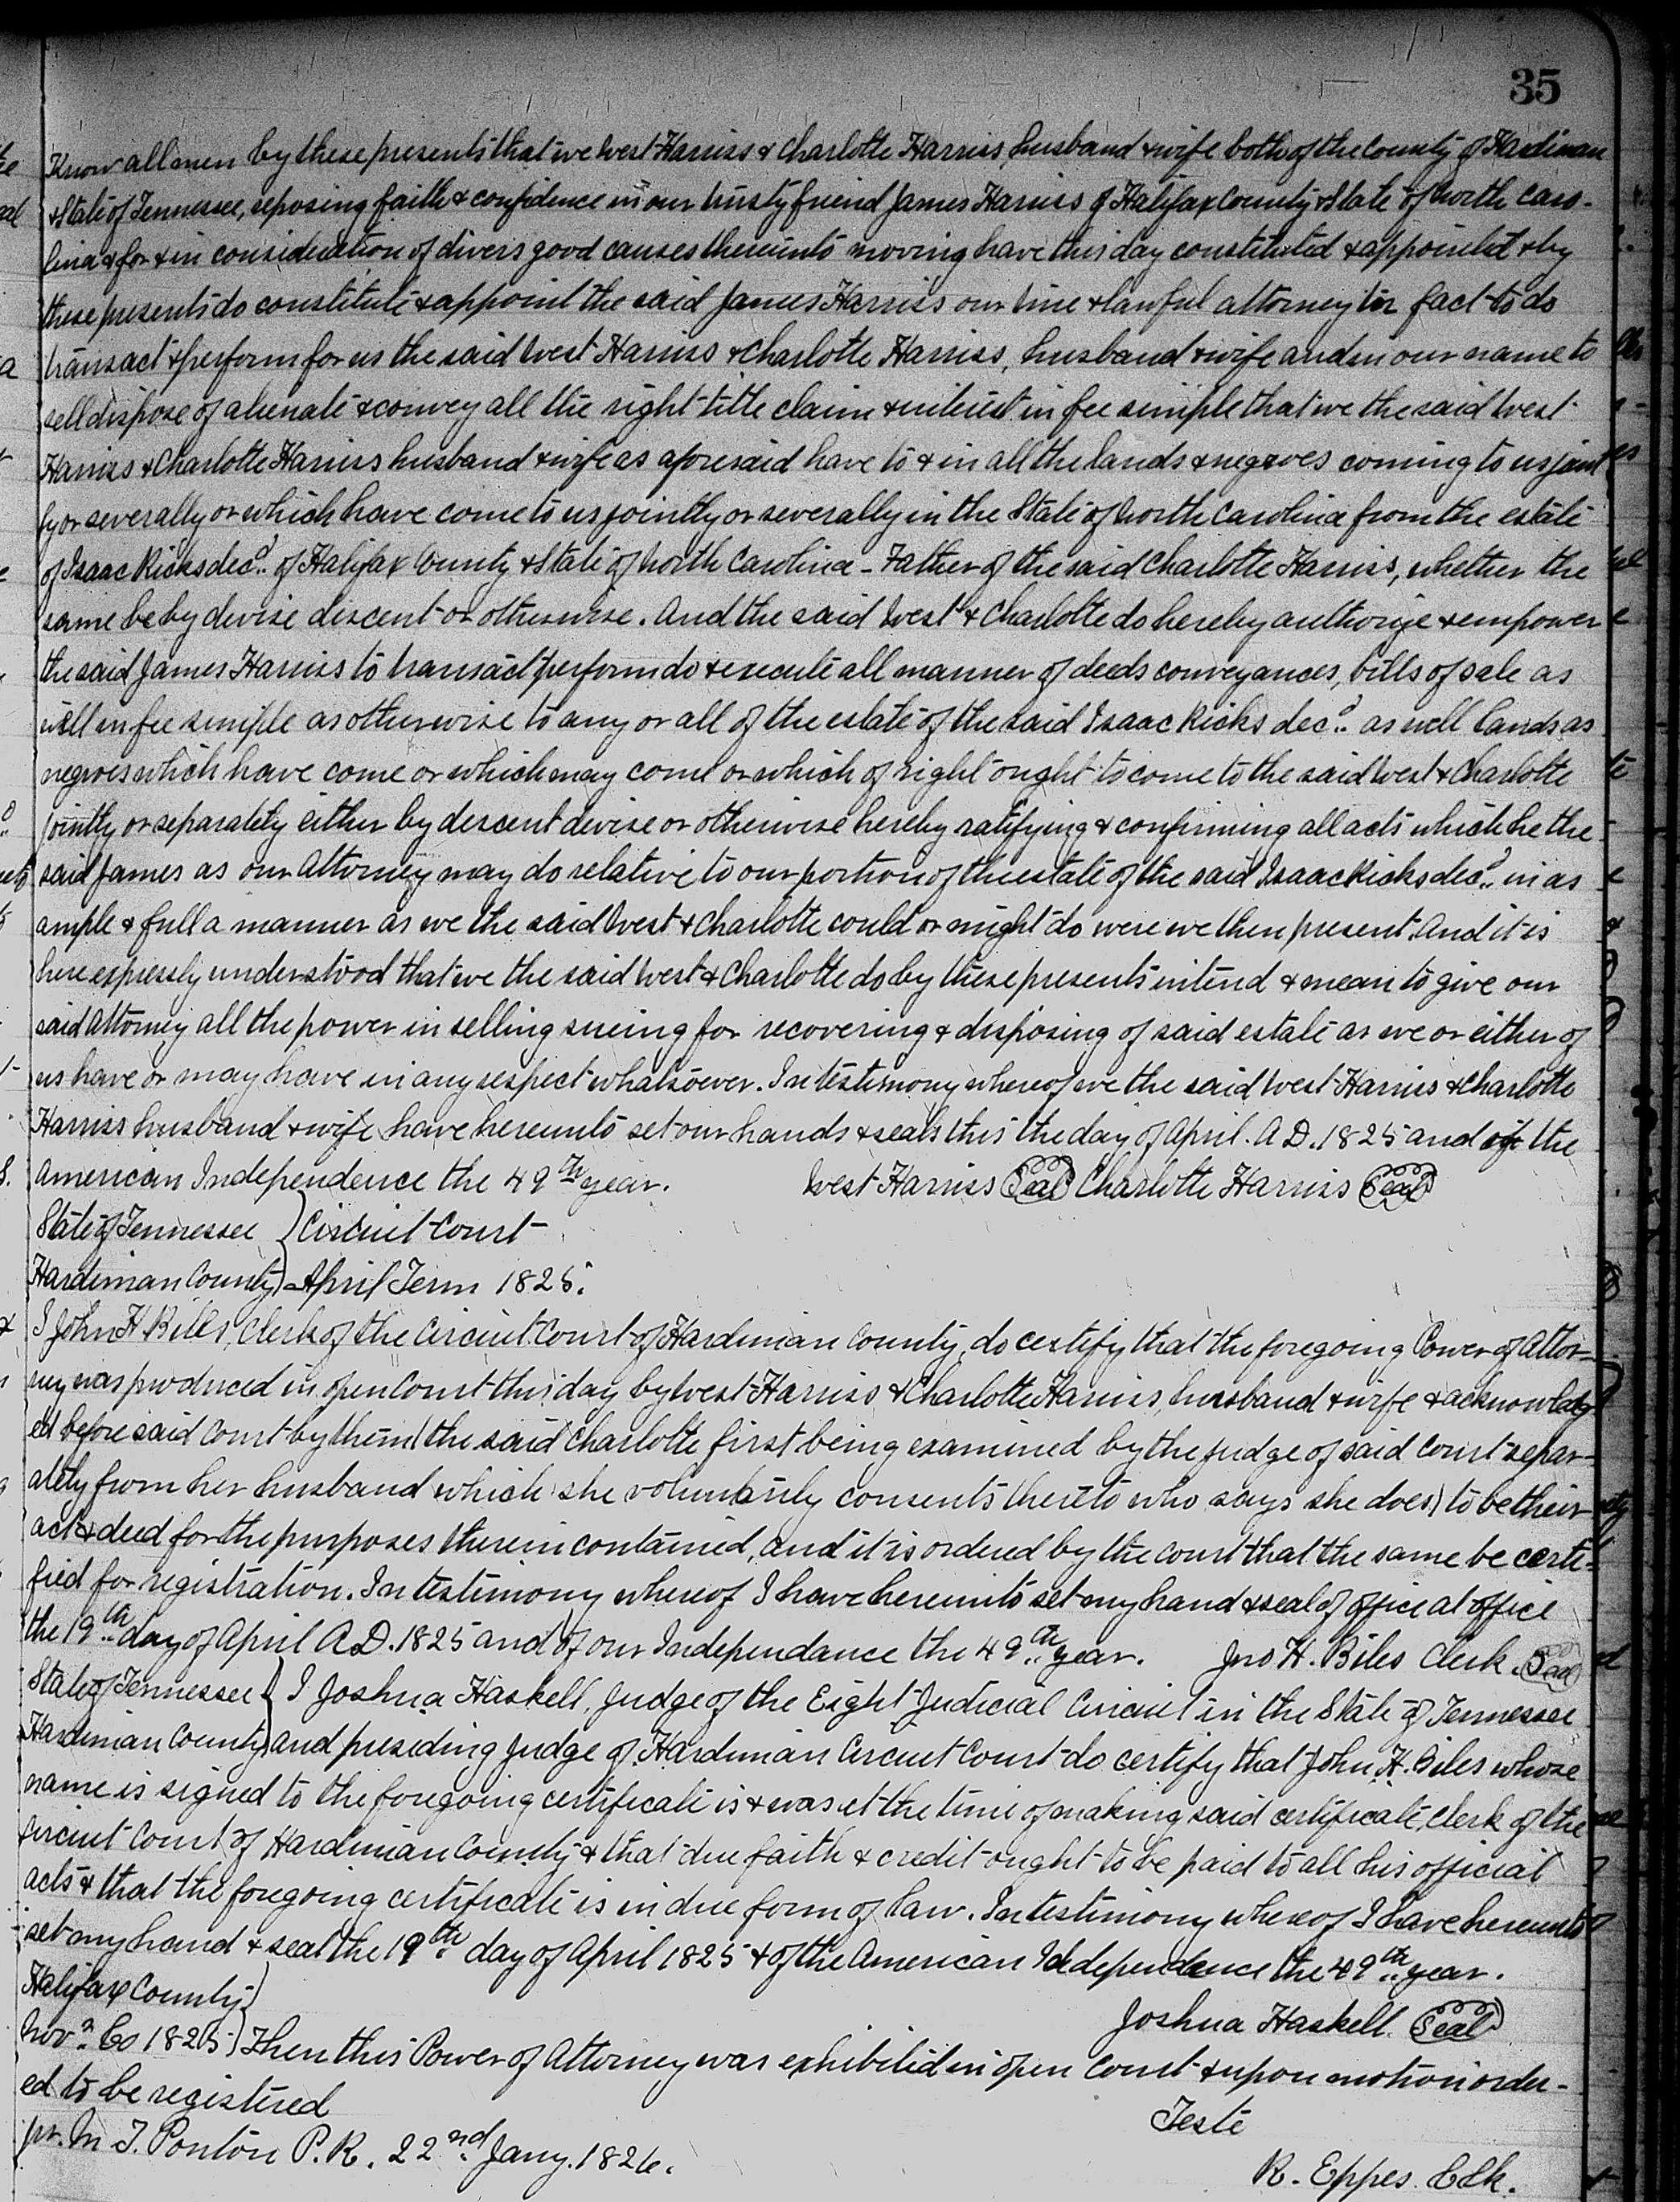 35
Know all men by these presents that we West Harriss & Charlotte Harriss, husband & wife both of the County of Hardiman
& State of Tennessee, reposing faith & confidence in our trusty friend James Harriss of Halifax County & State of North Caro-
lina & for & in consideration of divers good causes thereunto moving have this day constituted & appointed & by
these presents do constitute & appoint the said James Harriss our true & lawful attorney in fact to do
transact & perform for us the said West Harriss & Charlotte Harriss, husband & wife and in our name to
sell dispose of alienate & convey all the right title claim & interest in fee simple that we the said West
Harriss & Charlotte Harriss husband & wife as aforesaid have to & in all the lands & negroes coming to us joint
ly or severally or which have come to us jointly or severally in the State of North Carolina from the estate
of Isaac Ricks decd. of Halifax County & State of North Carolina - Father of the said Charlotte Harriss, whether the
same be by devise descent or otherwise. And the said West & Charlotte do hereby authorize & empower
the said James Harriss to transact perform do & execute all manner of deeds conveyances, bills of sale as
well in fee simple as otherwise to any or all of the estate of the said Isaac Ricks decd. as well lands as
negroes which have come or which may come or which of right ought to come to the said West & Charlotte
jointly or separately either by descent devise or otherwise hereby ratifying & confirming all acts which he the
said James as our Attorney may do relative to our portion of the estate of the said Isaac Ricks decd. in as
ample & full a manner as we the said West & Charlotte could or might do were we then present. And it is
here expressly understood that we the said West & Charlotte do by these presents intend & mean to give our
said Attorney all the power in selling sueing for recovering & disposing of said estate as we or either of
us have or may have in any respect whatsoever. In testimony whereof we the said West Harriss & Charlotte
Harriss husband & wife have hereunto set our hands & seals this the day of April. A D. 1825 and of the
American Independence the 49th year. West Harriss Seal Charlotte Harriss Seal
State of Tennessee } Circuit Court
Hardiman County } April Term 1825.
I John H Bills, Clerk of the Circuit Court of Hardiman County, do certify that the foregoing Power of Attor-
ney was produced in open Court this day by West Harriss & Charlotte Harriss, husband & wife & acknowledg
ed before said Court by them (the said Charlotte first being examined by the judge of said Court separ-
ately from her husband which she voluntarily consents thereto who says she does) to be their
act & deed for the purposes therein contained, and it is ordered by the court that the same be certi-
fied for registration. In testimony whereof I have hereunto set my hand & seal of office at office
the 19th day of April A.D. 1825 and of our Independance the 49th year. Jno H. Biles Clerk. Seal
State of Tennessee } I Joshua Haskell, Judge of the Eight Judicial Circuit in the State of Tennessee
Hardiman County } and presiding judge of Hardiman Circuit Court do certify that John H. Biles whose
name is signed to the foregoing certificate is & was at the time of making said certificate, Clerk of the
circuit Court of Hardiman County & that due faith & credit ought to be paid to all his official
acts & that the foregoing certificate is in due form of law. In testimony whereof I have hereunto
set my hand & seal the 19th day of April 1825 & of the American Idependence the 49th year.
Halifax County } Joshua Haskell. Seal
Nov. Co 1825 } Then this Power of Attorney was exhibited in open Court & upon motion order-
ed to be registered Teste
pr. M T. Ponton P. R. 22nd Jany. 1826. R. Eppes. Clk.